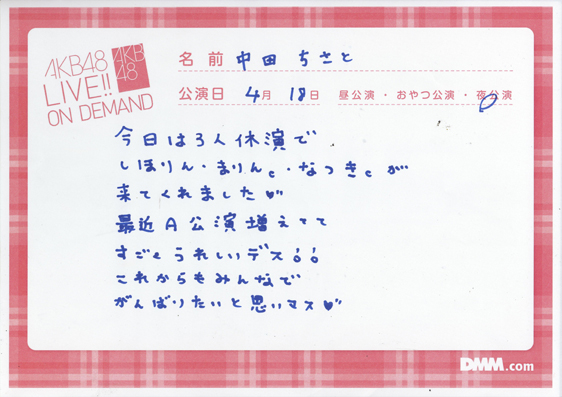 AKB48
LIVE!!
ON DEMAND
AKB
48
名前 中田 ちさと
公演日 4月 18日 昼公演・おやつ公演・夜公演
今日は3人休演で
しほりん・まりんc・なつきcが
来てくれました♥
最近A公演増えてて
すごくうれしいデス!!
これからもみんなで
がんばりたいと思いマス♥
DMM.com